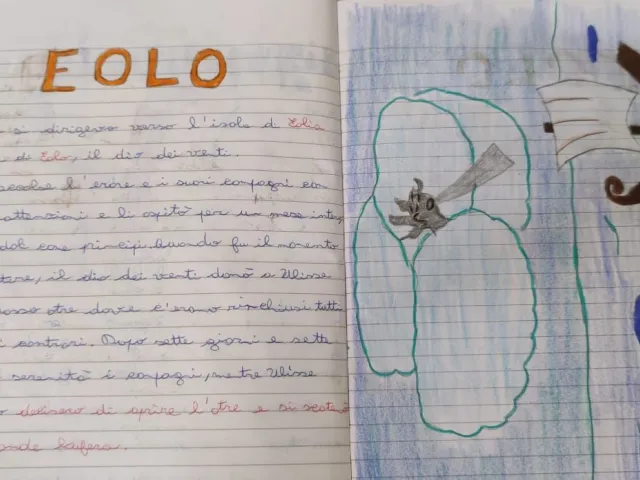 EOLO
si dirigevo verso l'isola di Eolia
di Eolo, il dio dei venti.
l'eroe e i suoi compagni con
attenzioni e li ospitò per un mese inte
principi. Quando fu il momento
tare, il dio dei venti donò a Ulisse
osso otre dove c'erano rinchiusi tutti
i contrari. Dopo sette giorni e sette
serenità i compagni, mentre Ulisse
decisero di aprire l'otre e si scaten
ande bufera.